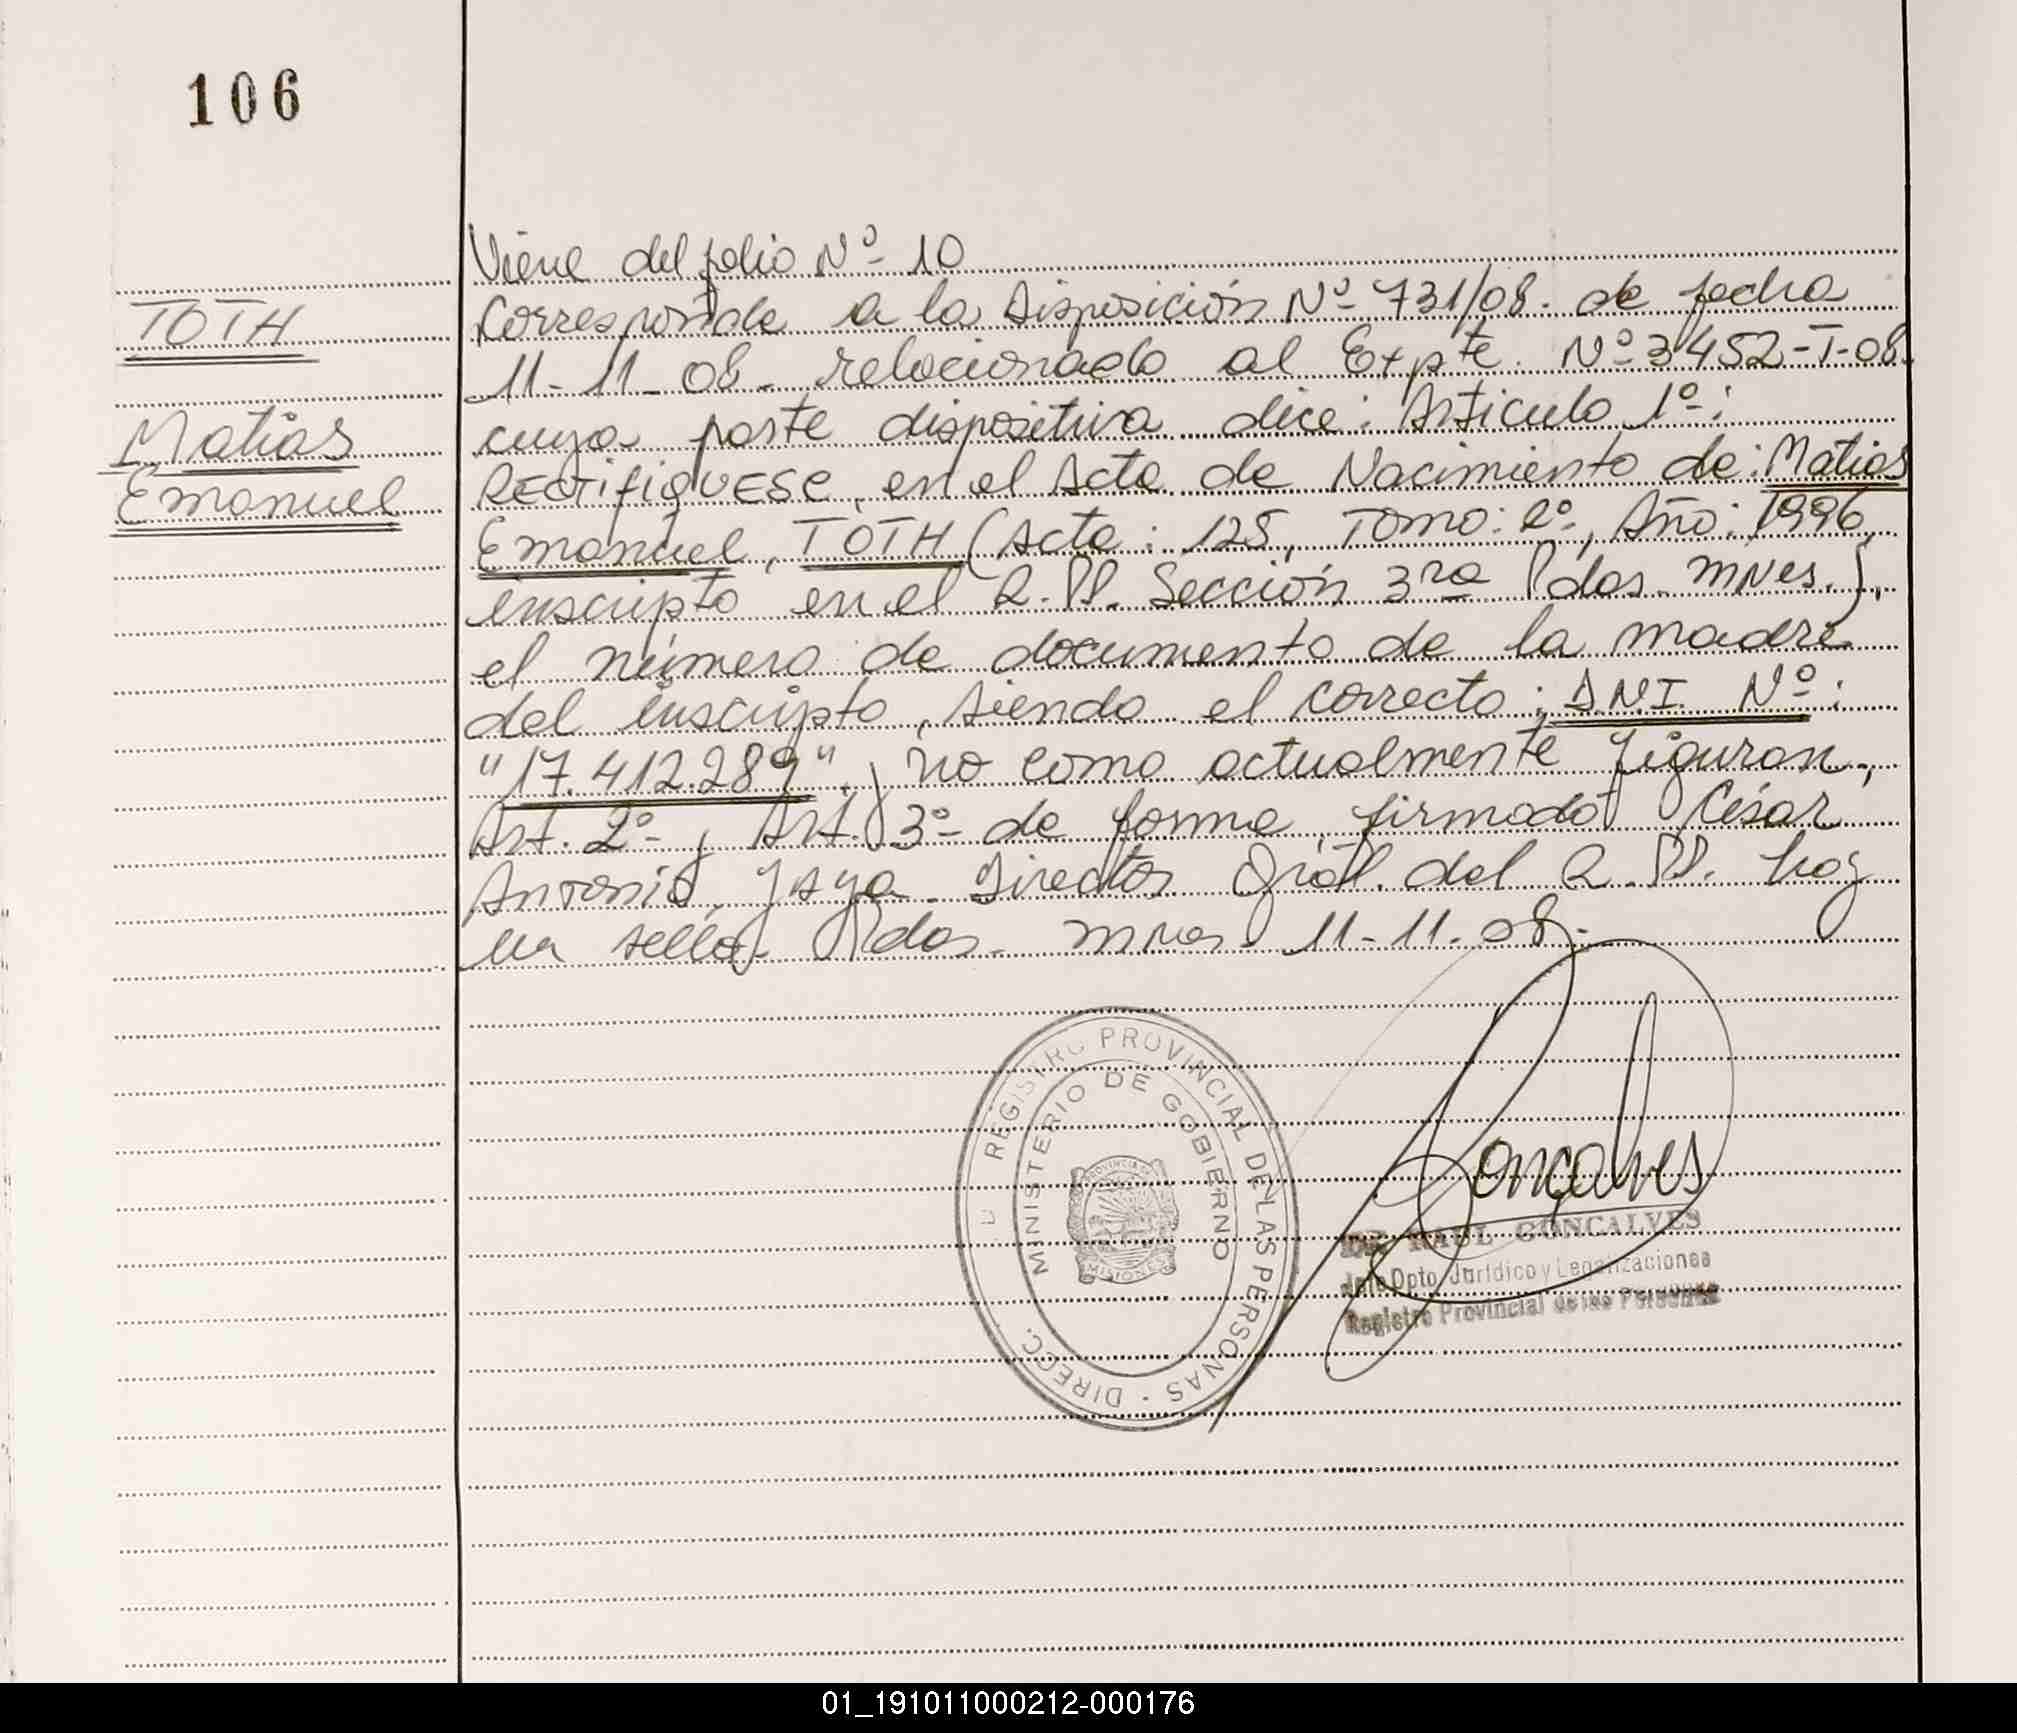 106
TOTH
Matias
Emanuel
Viene del folio Nº 10
Corresponde a la Disposición Nº 731/08. de fecha
11-11-08. relacionado al Expte. Nº 3452-T-08.
cuya parte dispositiva dice: Articulo 1º:
RECTIFIQUESE, en el Acta de Nacimiento de: Matias
Emanuel, TOTH (Acta: 125, Tomo: 2º, Año: 1996,
inscripto en el R.PP. Sección 3ra Pdas. Mnes.),
el número de documento de la madre
del inscripto, siendo el correcto: D.N.I. Nº:
"17.412.289" y no como actualmente figuran,
Art. 2º y Art. 3º de forma, firmado César
Antonio Director Gral. del R.PP. hay
un sello Pdas. Mnes. 11-11-08.
REGISTRO PROVINCIAL DE LAS PERSONAS - DIRECC.
MINISTERIO DE GOBIERNO
PROVINCIA DE
MISIONES
Gonçalves
DR RAUL GONCALVES
Jefe Dpto. Jurídico y Legalizaciones
Registro Provincial de las Personas
01_191011000212-000176